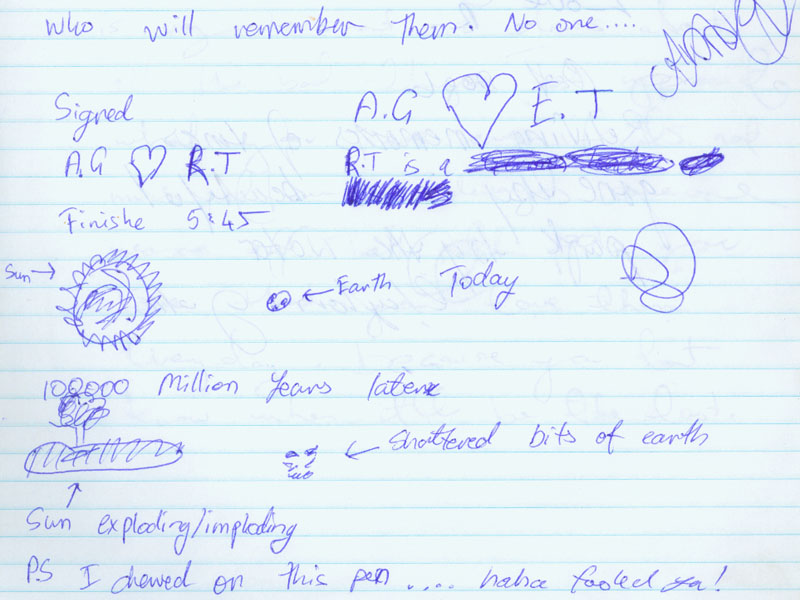 who will remember them. No one....
Signed
A.G ♡ E.T
A.G ♡ R.T
R.T is a
Finishe 5:45
Sun →
← Earth
Today
100000 Million Years later
← Shattered bits of earth
↑
Sun exploding/imploding
P.S I chewed on this pen .... haha fooled ya!